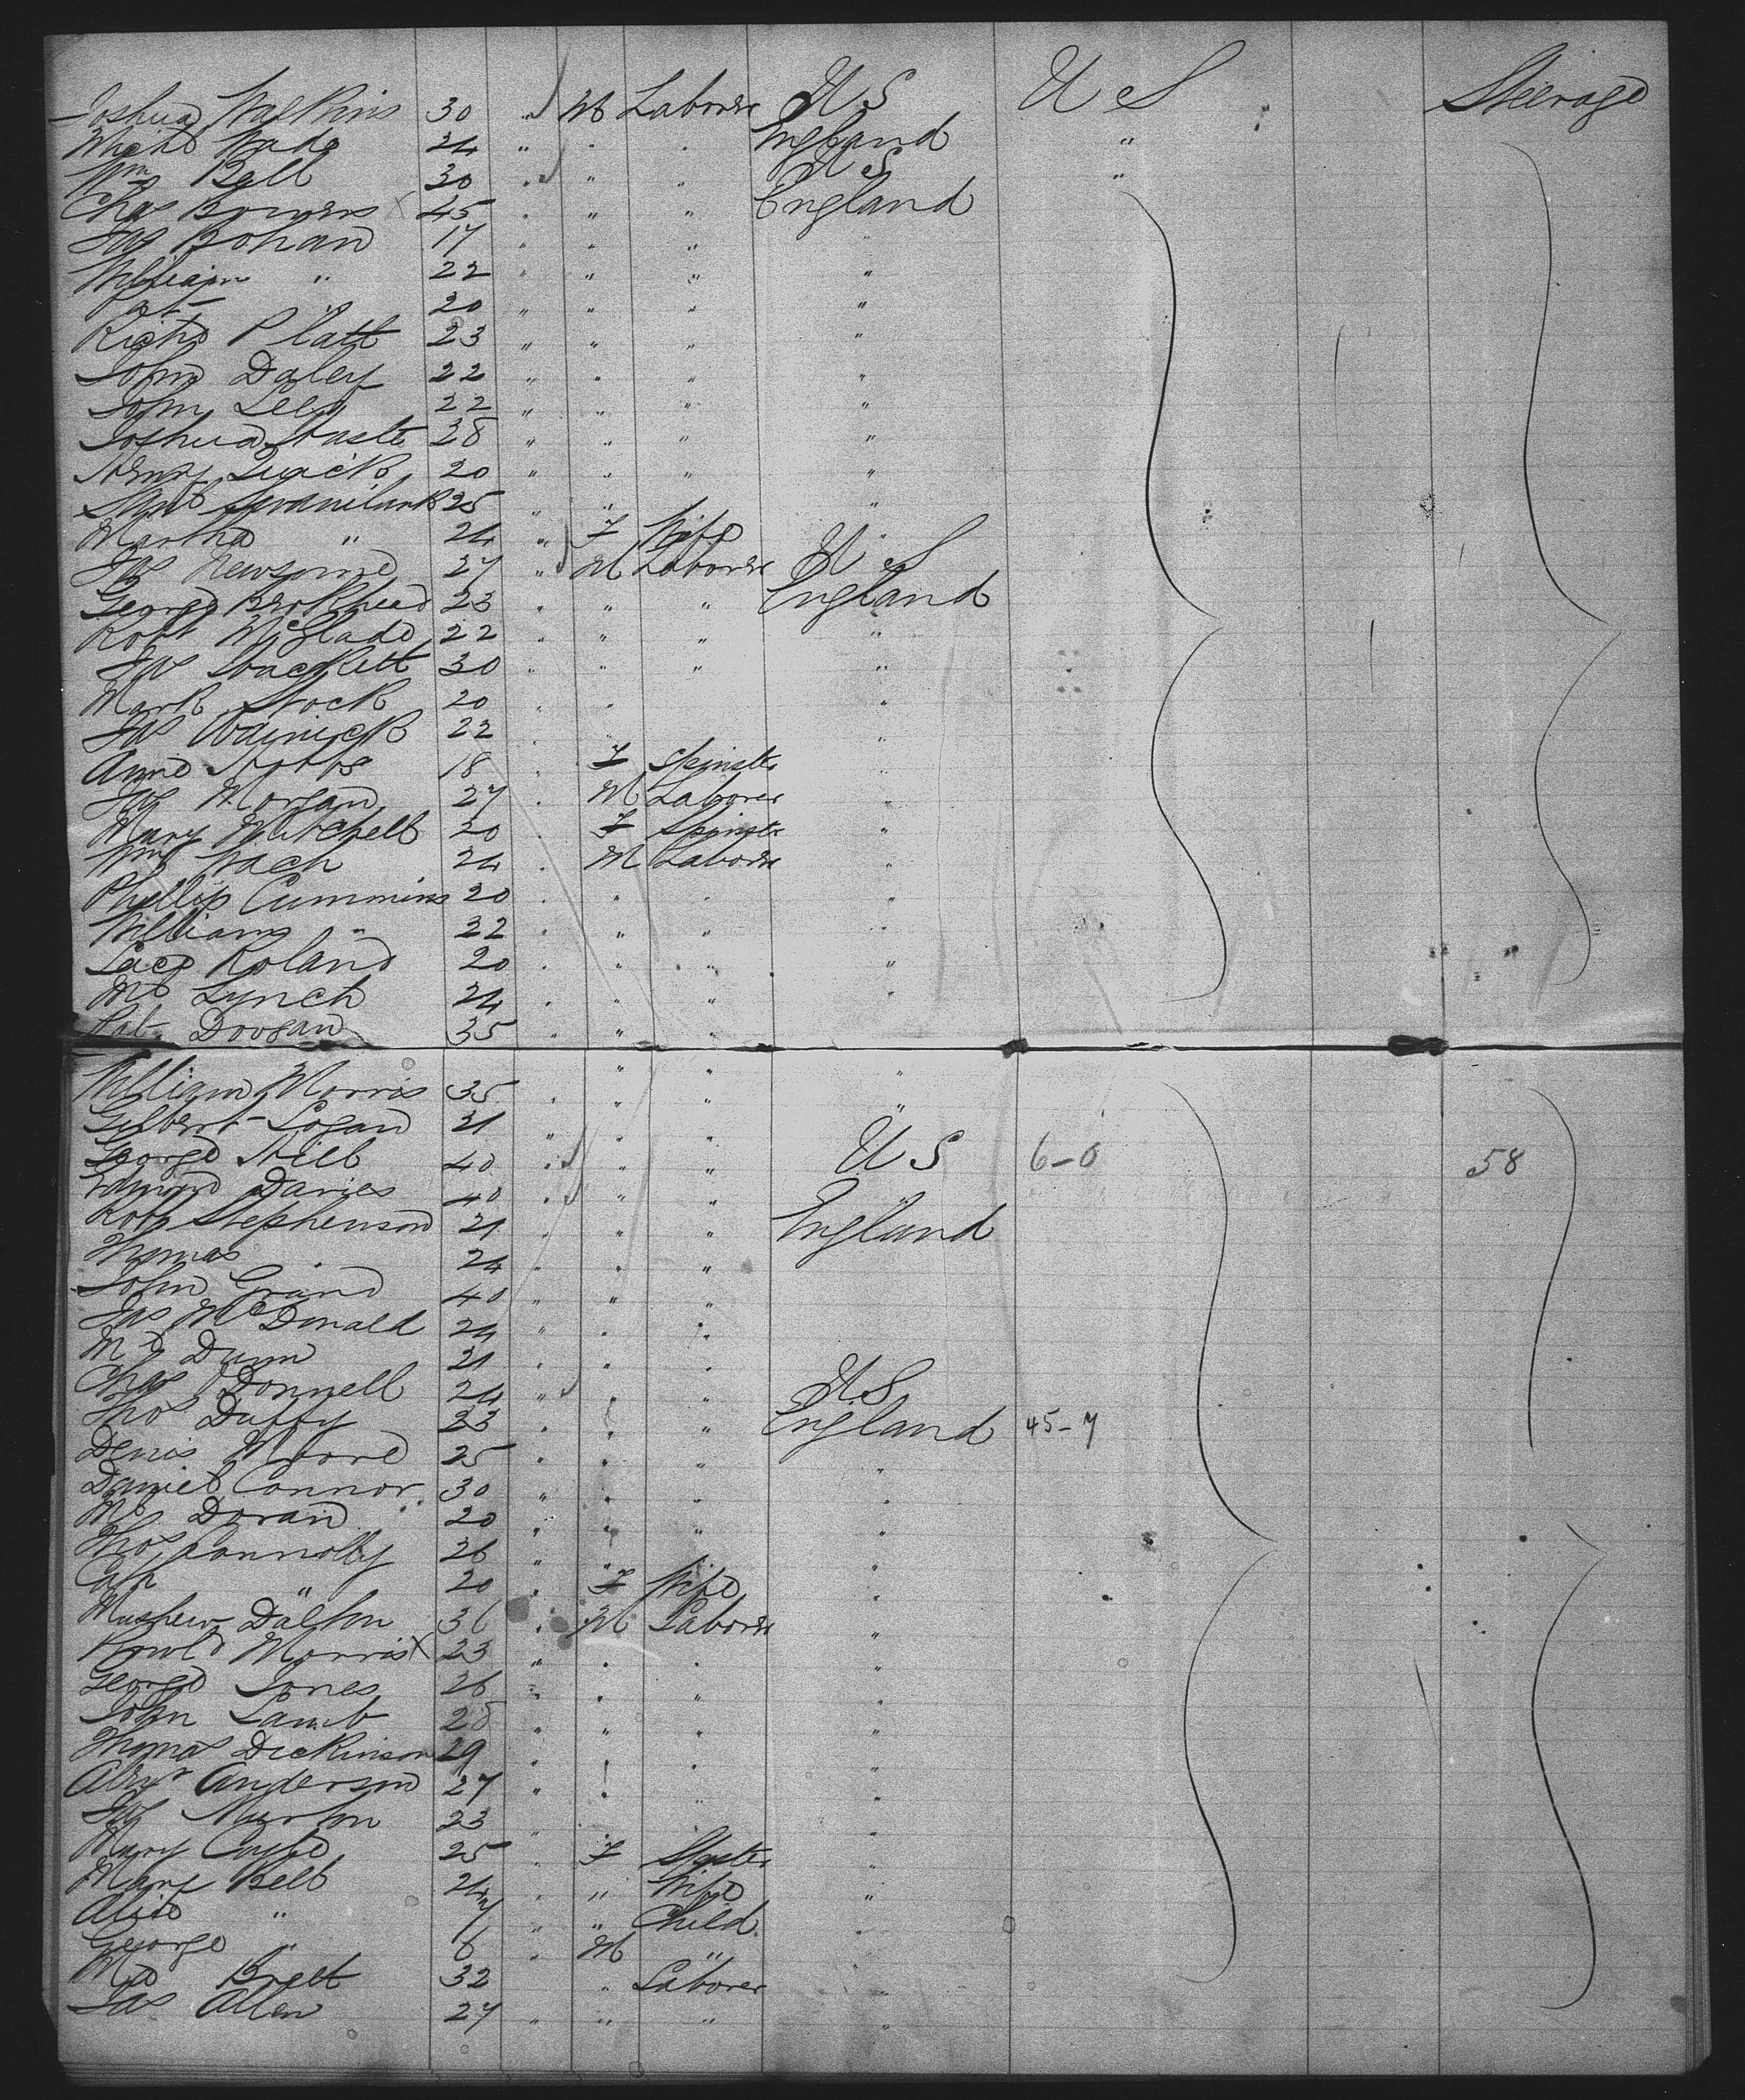 Joshua Watkins 30 " M Laborer U S U S Steerage
Wade 24 " " " England "
Wm Bell 30 " " " U S "
Chas Bowers X 45 " " " England
Jas Bohan 17 " " " "
William " 22 " " " "
Pat " 20 " " " "
Richd Platt 23 " " " "
John Daley 22 " " " "
John Lee 22 " " " "
Joshua 28 " " " "
Henry Quick 20 " " " "
Saml 25 " " "
Martha " 24 " F Wife "
Jas Newsome 27 " M Laborer U S
George 23 " " " England
Robt McGlade 22 " " " "
Jas 30 " " " "
Mark Stock 20 " " "
Jas 22 " "
Anne 18 " F Spinster "
Jas Morgan 27 " M Laborer "
Mary Mitchell 20 " F Spinster "
Wm 24 " M Laborer "
Phillip Cummins 20 " " " "
William " 22 " " " "
Roland 20 " " " "
Md Lynch 24 " " " "
Pat Doogan 35 " " "
William Morris 35 " " " "
Gilbert Logan 21 " " " "
George Still 40 " " " U S 6-0 58
Edward Davies 40 " " " "
Robt Stephenson 21 " " " England
Thomas " 24 " " "
John Grand 40 " " "
Jas McDonald 24 " " "
Md Dunn 21 " " "
Chas O'Donnell 24 " " " U S
Thos Duffy 23 " " " England 45-7
Denis Moore 25 " " " "
Daniel Connor 30 " " " "
Md Doran 20 " " " "
Thos Connolly 26 " " "
Cath " 20 " F Wife "
Mathew Dalton 36 " M Laborer "
Rowld Morris X 23 " " " "
George Jones 26 " " " "
John Lamb 28 " " " "
Thomas Dickinson 29 " " " "
Alexr Anderson 27 " " " "
Jas 23 " "
Mary 25 " F Spinster "
Mary Bell 24 " " Wife "
Alice " 7 " " Child "
George " 6 " M "
Md Brett 32 " Laborer "
Jas Allen 27 " " " "